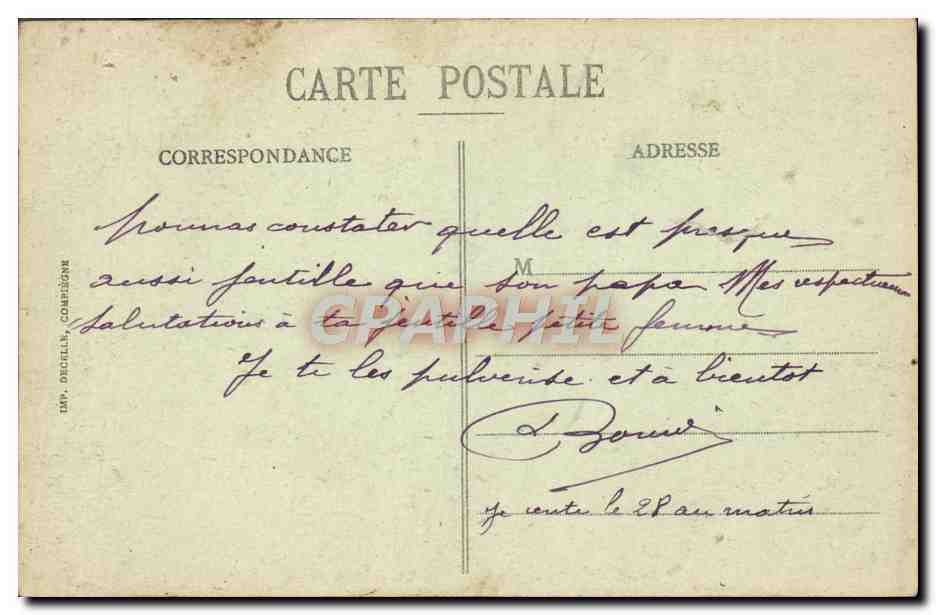 CARTE POSTALE
CORRESPONDANCE
ADRESSE
pourras constater quelle est presque
aussi gentille que son papa Mes respectueuses
salutations à ta gentille petite femme
Je te les pulverise et à bientot
M
Je rentre le 28 au matin
IMP. DECELLE, COMPIÈGNE
CPAPHIL